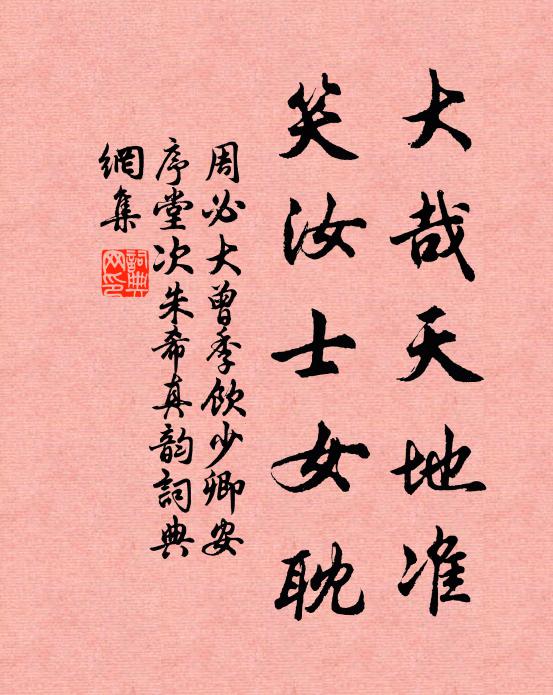 大哉天地准
笑汝士女耽
周必大曾季飲少卿安
序堂次朱希真韵詞典
網集
詞典网印